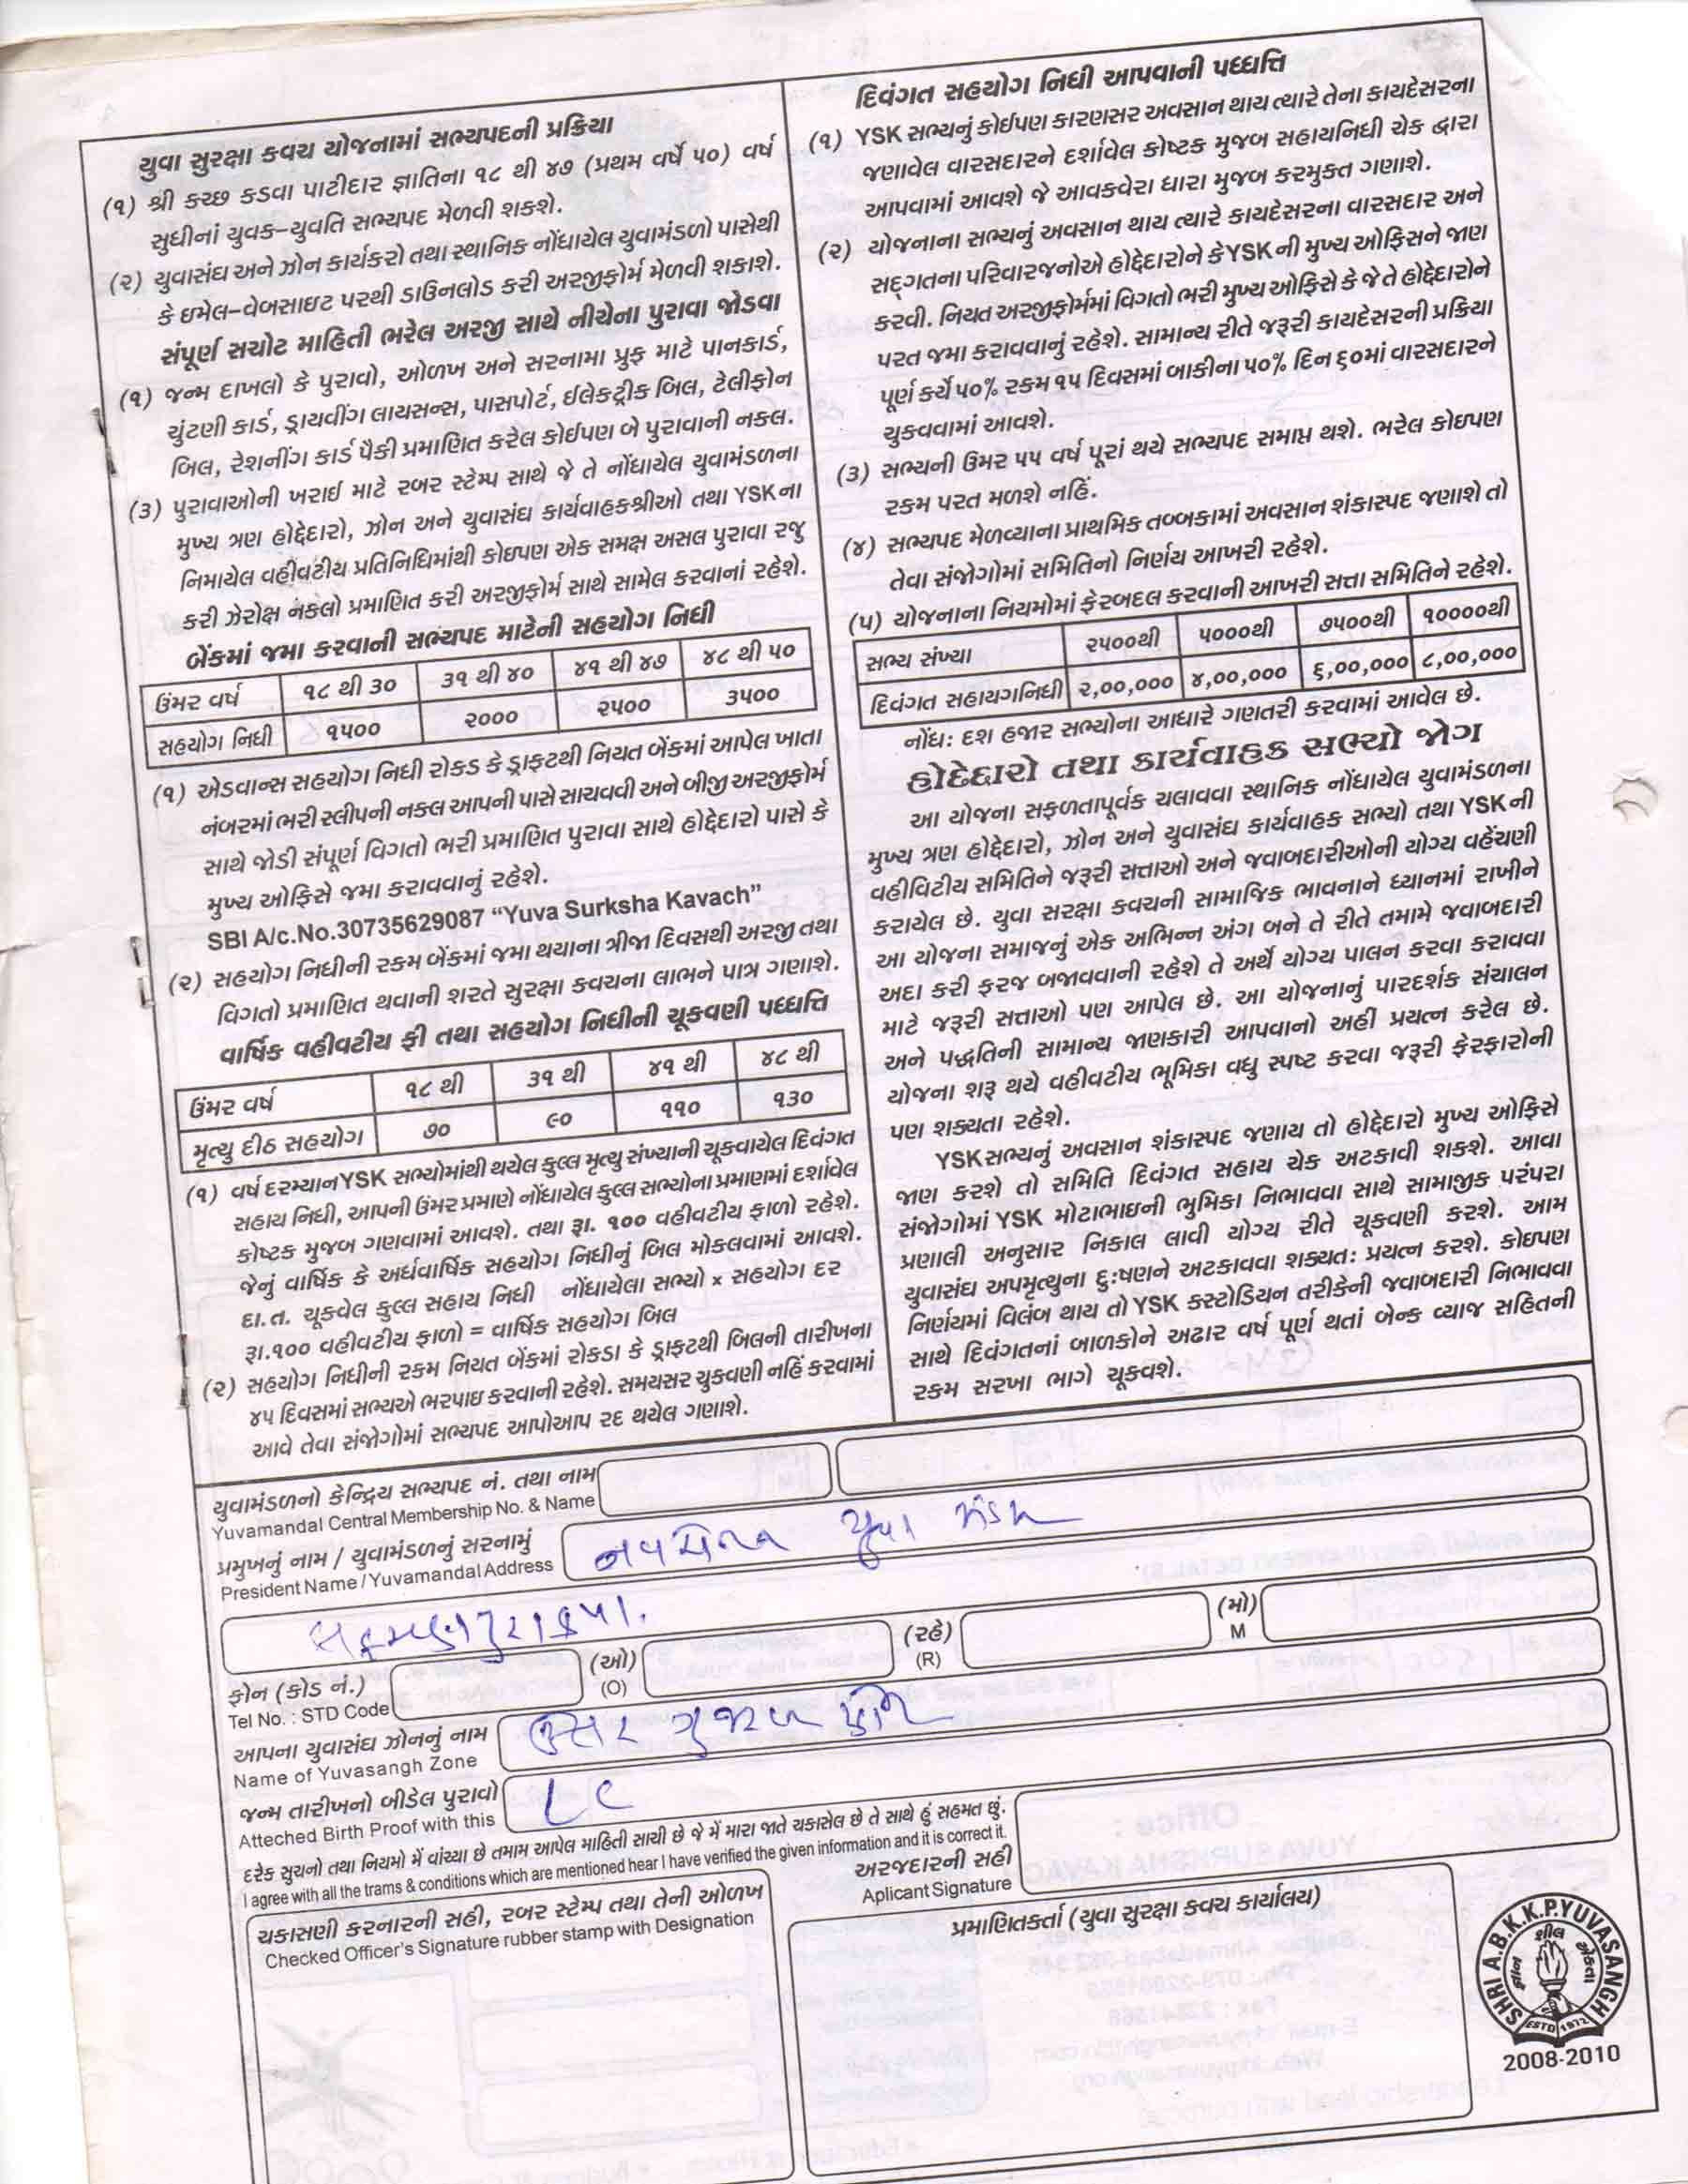 યુવા સુરક્ષા કવચ યોજનામાં સભ્યપદની પ્રક્રિયા
(૧) શ્રી કચ્છ કડવા પાટીદાર જ્ઞાતિના ૧૮ થી ૪૭ (પ્રથમ વર્ષે ૫૦) વર્ષ
સુધીનાં યુવક–યુવતિ સભ્યપદ મેળવી શકશે.
(૨) યુવાસંઘ અને ઝોન કાર્યકરો તથા સ્થાનિક નોંધાયેલ યુવામંડળો પાસેથી
કે ઇમેલ–વેબસાઇટ પરથી ડાઉનલોડ કરી અરજીફોર્મ મેળવી શકાશે.
સંપૂર્ણ સચોટ માહિતી ભરેલ અરજી સાથે નીચેના પુરાવા જોડવા
(૧) જન્મ દાખલો કે પુરાવો, ઓળખ અને સરનામા પ્રુફ માટે પાનકાર્ડ,
ચુંટણી કાર્ડ, ડ્રાયવીંગ લાયસન્સ, પાસપોર્ટ, ઈલેક્ટ્રીક બિલ, ટેલીફોન
બિલ, રેશનીંગ કાર્ડ પૈકી પ્રમાણિત કરેલ કોઈપણ બે પુરાવાની નકલ.
(૩) પુરાવાઓની ખરાઈ માટે રબર સ્ટેમ્પ સાથે જે તે નોંધાયેલ યુવામંડળના
મુખ્ય ત્રણ હોદ્દેદારો, ઝોન અને યુવાસંઘ કાર્યવાહકશ્રીઓ તથા YSKના
નિમાયેલ વહીવટીય પ્રતિનિધિમાંથી કોઇપણ એક સમક્ષ અસલ પુરાવા રજુ
કરી ઝેરોક્ષ નકલો પ્રમાણિત કરી અરજીફોર્મ સાથે સામેલ કરવાનાં રહેશે.
બેંકમાં જમા કરવાની સભ્યપદ માટેની સહયોગ નિધી
ઉંમર વર્ષ ૧૮ થી ૩૦ ૩૧ થી ૪૦ ૪૧ થી ૪૭ ૪૮ થી ૫૦
સહયોગ નિધી ૧૫૦૦ ૨૦૦૦ ૨૫૦૦ ૩૫૦૦
(૧) એડવાન્સ સહયોગ નિધી રોકડ કે ડ્રાફટથી નિયત બેંકમાં આપેલ ખાતા
નંબરમાં ભરી સ્લીપની નકલ આપની પાસે સાચવવી અને બીજી અરજીફોર્મ
સાથે જોડી સંપૂર્ણ વિગતો ભરી પ્રમાણિત પુરાવા સાથે હોદ્દેદારો પાસે કે
મુખ્ય ઓફિસે જમા કરાવવાનું રહેશે.
SBI A/c.No.30735629087 “Yuva Surksha Kavach”
(૨) સહયોગ નિધીની રકમ બેંકમાં જમા થયાના ત્રીજા દિવસથી અરજી તથા
વિગતો પ્રમાણિત થવાની શરતે સુરક્ષા કવચના લાભને પાત્ર ગણાશે.
વાર્ષિક વહીવટીય ફી તથા સહયોગ નિધીની ચૂકવણી પધ્ધત્તિ
ઉંમર વર્ષ ૧૮ થી ૩૧ થી ૪૧ થી ૪૮ થી
મૃત્યુ દીઠ સહયોગ ૭૦ ૯૦ ૧૧૦ ૧૩૦
(૧) વર્ષ દરમ્યાન YSK સભ્યોમાંથી થયેલ કુલ્લ મૃત્યુ સંખ્યાની ચૂકવાયેલ દિવંગત
સહાય નિધી, આપની ઉંમર પ્રમાણે નોંધાયેલ કુલ્લ સભ્યોના પ્રમાણમાં દર્શાવેલ
કોષ્ટક મુજબ ગણવામાં આવશે. તથા રૂા. ૧૦૦ વહીવટીય ફાળો રહેશે.
જેનું વાર્ષિક કે અર્ધવાર્ષિક સહયોગ નિધીનું બિલ મોકલવામાં આવશે.
દા.ત. ચૂકવેલ કુલ્લ સહાય નિધી નોંધાયેલા સભ્યો × સહયોગ દર
રૂા.૧૦૦ વહીવટીય ફાળો = વાર્ષિક સહયોગ બિલ
(૨) સહયોગ નિધીની રકમ નિયત બેંકમાં રોકડા કે ડ્રાફટથી બિલની તારીખના
૪૫ દિવસમાં સભ્યએ ભરપાઇ કરવાની રહેશે. સમયસર ચુકવણી નહિં કરવામાં
આવે તેવા સંજોગોમાં સભ્યપદ આપોઆપ રદ થયેલ ગણાશે.
દિવંગત સહયોગ નિધી આપવાની પધ્ધત્તિ
(૧) YSK સભ્યનું કોઈપણ કારણસર અવસાન થાય ત્યારે તેના કાયદેસરના
જણાવેલ વારસદારને દર્શાવેલ કોષ્ટક મુજબ સહાયનિધી ચેક દ્વારા
આપવામાં આવશે જે આવકવેરા ધારા મુજબ કરમુક્ત ગણાશે.
(૨) યોજનાના સભ્યનું અવસાન થાય ત્યારે કાયદેસરના વારસદાર અને
સદ્ગતના પરિવારજનોએ હોદ્દેદારોને કે YSK ની મુખ્ય ઓફિસને જાણ
કરવી. નિયત અરજીફોર્મમાં વિગતો ભરી મુખ્ય ઓફિસે કે જે તે હોદ્દેદારોને
પરત જમા કરાવવાનું રહેશે. સામાન્ય રીતે જરૂરી કાયદેસરની પ્રક્રિયા
પૂર્ણ કર્યે ૫૦% રકમ ૧૫ દિવસમાં બાકીના ૫૦% દિન ૬૦માં વારસદારને
ચુકવવામાં આવશે.
(૩) સભ્યની ઉમર ૫૫ વર્ષ પૂરાં થયે સભ્યપદ સમાપ્ત થશે. ભરેલ કોઇપણ
રકમ પરત મળશે નહિં.
(૪) સભ્યપદ મેળવ્યાના પ્રાથમિક તબ્બકામાં અવસાન શંકાસ્પદ જણાશે તો
તેવા સંજોગોમાં સમિતિનો નિર્ણય આખરી રહેશે.
(૫) યોજનાના નિયમોમાં ફેરબદલ કરવાની આખરી સત્તા સમિતિને રહેશે.
સભ્ય સંખ્યા ૨૫૦૦થી ૫૦૦૦થી ૭૫૦૦થી ૧૦૦૦૦થી
દિવંગત સહાયગનિધી ૨,૦૦,૦૦૦ ૪,૦૦,૦૦૦ ૬,૦૦,૦૦૦ ૮,૦૦,૦૦૦
નોંધ: દશ હજાર સભ્યોના આધારે ગણતરી કરવામાં આવેલ છે.
હોદેદારો તથા કાર્યવાહક સભ્યો જોગ
આ યોજના સફળતાપૂર્વક ચલાવવા સ્થાનિક નોંધાયેલ યુવામંડળના
મુખ્ય ત્રણ હોદ્દેદારો, ઝોન અને યુવાસંઘ કાર્યવાહક સભ્યો તથા YSKની
વહીવિટીય સમિતિને જરૂરી સત્તાઓ અને જવાબદારીઓની યોગ્ય વહેંચણી
કરાયેલ છે. યુવા સરક્ષા કવચની સામાજિક ભાવનાને ધ્યાનમાં રાખીને
આ યોજના સમાજનું એક અભિન્ન અંગ બને તે રીતે તમામે જવાબદારી
અદા કરી ફરજ બજાવવાની રહેશે તે અર્થે યોગ્ય પાલન કરવા કરાવવા
માટે જરૂરી સત્તાઓ પણ આપેલ છે. આ યોજનાનું પારદર્શક સંચાલન
અને પદ્ધતિની સામાન્ય જાણકારી આપવાનો અહીં પ્રયત્ન કરેલ છે.
યોજના શરૂ થયે વહીવટીય ભૂમિકા વધુ સ્પષ્ટ કરવા જરૂરી ફેરફારોની
પણ શક્યતા રહેશે.
YSKસભ્યનું અવસાન શંકાસ્પદ જણાય તો હોદ્દેદારો મુખ્ય ઓફિસે
જાણ કરશે તો સમિતિ દિવંગત સહાય ચેક અટકાવી શકશે. આવા
સંજોગોમાં YSK મોટાભાઇની ભુમિકા નિભાવવા સાથે સામાજીક પરંપરા
પ્રણાલી અનુસાર નિકાલ લાવી યોગ્ય રીતે ચૂકવણી કરશે. આમ
યુવાસંઘ અપમૃત્યુના દુઃષણને અટકાવવા શક્યતઃ પ્રયત્ન કરશે. કોઇપણ
નિર્ણયમાં વિલંબ થાય તો YSK કસ્ટોડિયન તરીકેની જવાબદારી નિભાવવા
સાથે દિવંગતનાં બાળકોને અઢાર વર્ષ પૂર્ણ થતાં બેન્ક વ્યાજ સહિતની
રકમ સરખા ભાગે ચૂકવશે.
યુવામંડળનો કેન્દ્રિય સભ્યપદ નં. તથા નામ
Yuvamandal Central Membership No. & Name
પ્રમુખનું નામ / યુવામંડળનું સરનામું
President Name / Yuvamandal Address
નવચેતન યુવા મંડળ
લક્ષ્મણપુરાકંપા.
ફોન (કોડ નં.) (ઓ) (રહે) (મો)
Tel No. : STD Code (O) (R) M
આપના યુવાસંઘ ઝોનનું નામ
Name of Yuvasangh Zone
ઉત્તર ગુજરાત ઝોન
જન્મ તારીખનો બીડેલ પુરાવો
Atteched Birth Proof with this
LC
દરેક સુચનો તથા નિયમો મેં વાંચ્યા છે તમામ આપેલ માહિતી સાચી છે જે મેં મારા જાતે ચકાસેલ છે તે સાથે હું સહમત છું.
I agree with all the trams & conditions which are mentioned hear I have verified the given information and it is correct it.
અરજદારની સહી
Aplicant Signature
ચકાસણી કરનારની સહી, રબર સ્ટેમ્પ તથા તેની ઓળખ
Checked Officer's Signature rubber stamp with Designation
પ્રમાણિતકર્તા (યુવા સુરક્ષા કવચ કાર્યાલય)
SHRI A.B.K.K.P.YUVASANGH
શીલ
જ્ઞાન
એકતા
ESTD 1972
2008-2010